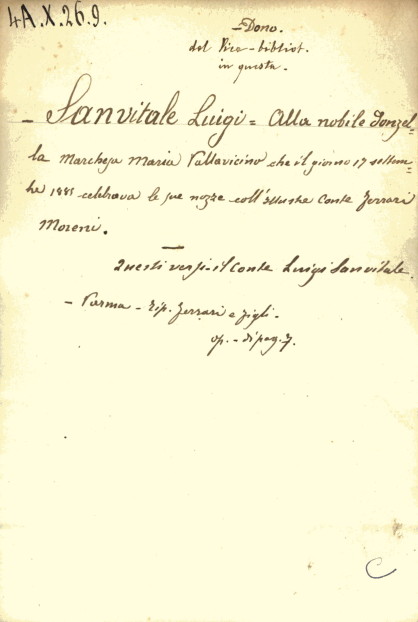 4A.X.26.9.
- Dono.
del Vice-bibliot.
in questa.
- Sanvitale Luigi = Alla nobile Donzel-
la Marchesa Maria Pallavicino che il giorno 17 settem-
bre 1881 celebrava le sue nozze coll'illustre Conte Ferrari
Moreni.
Questi versi - il Conte Luigi Sanvitale.
- Parma - Tip. Ferrari e figli.
op. - di pag. 7.
C